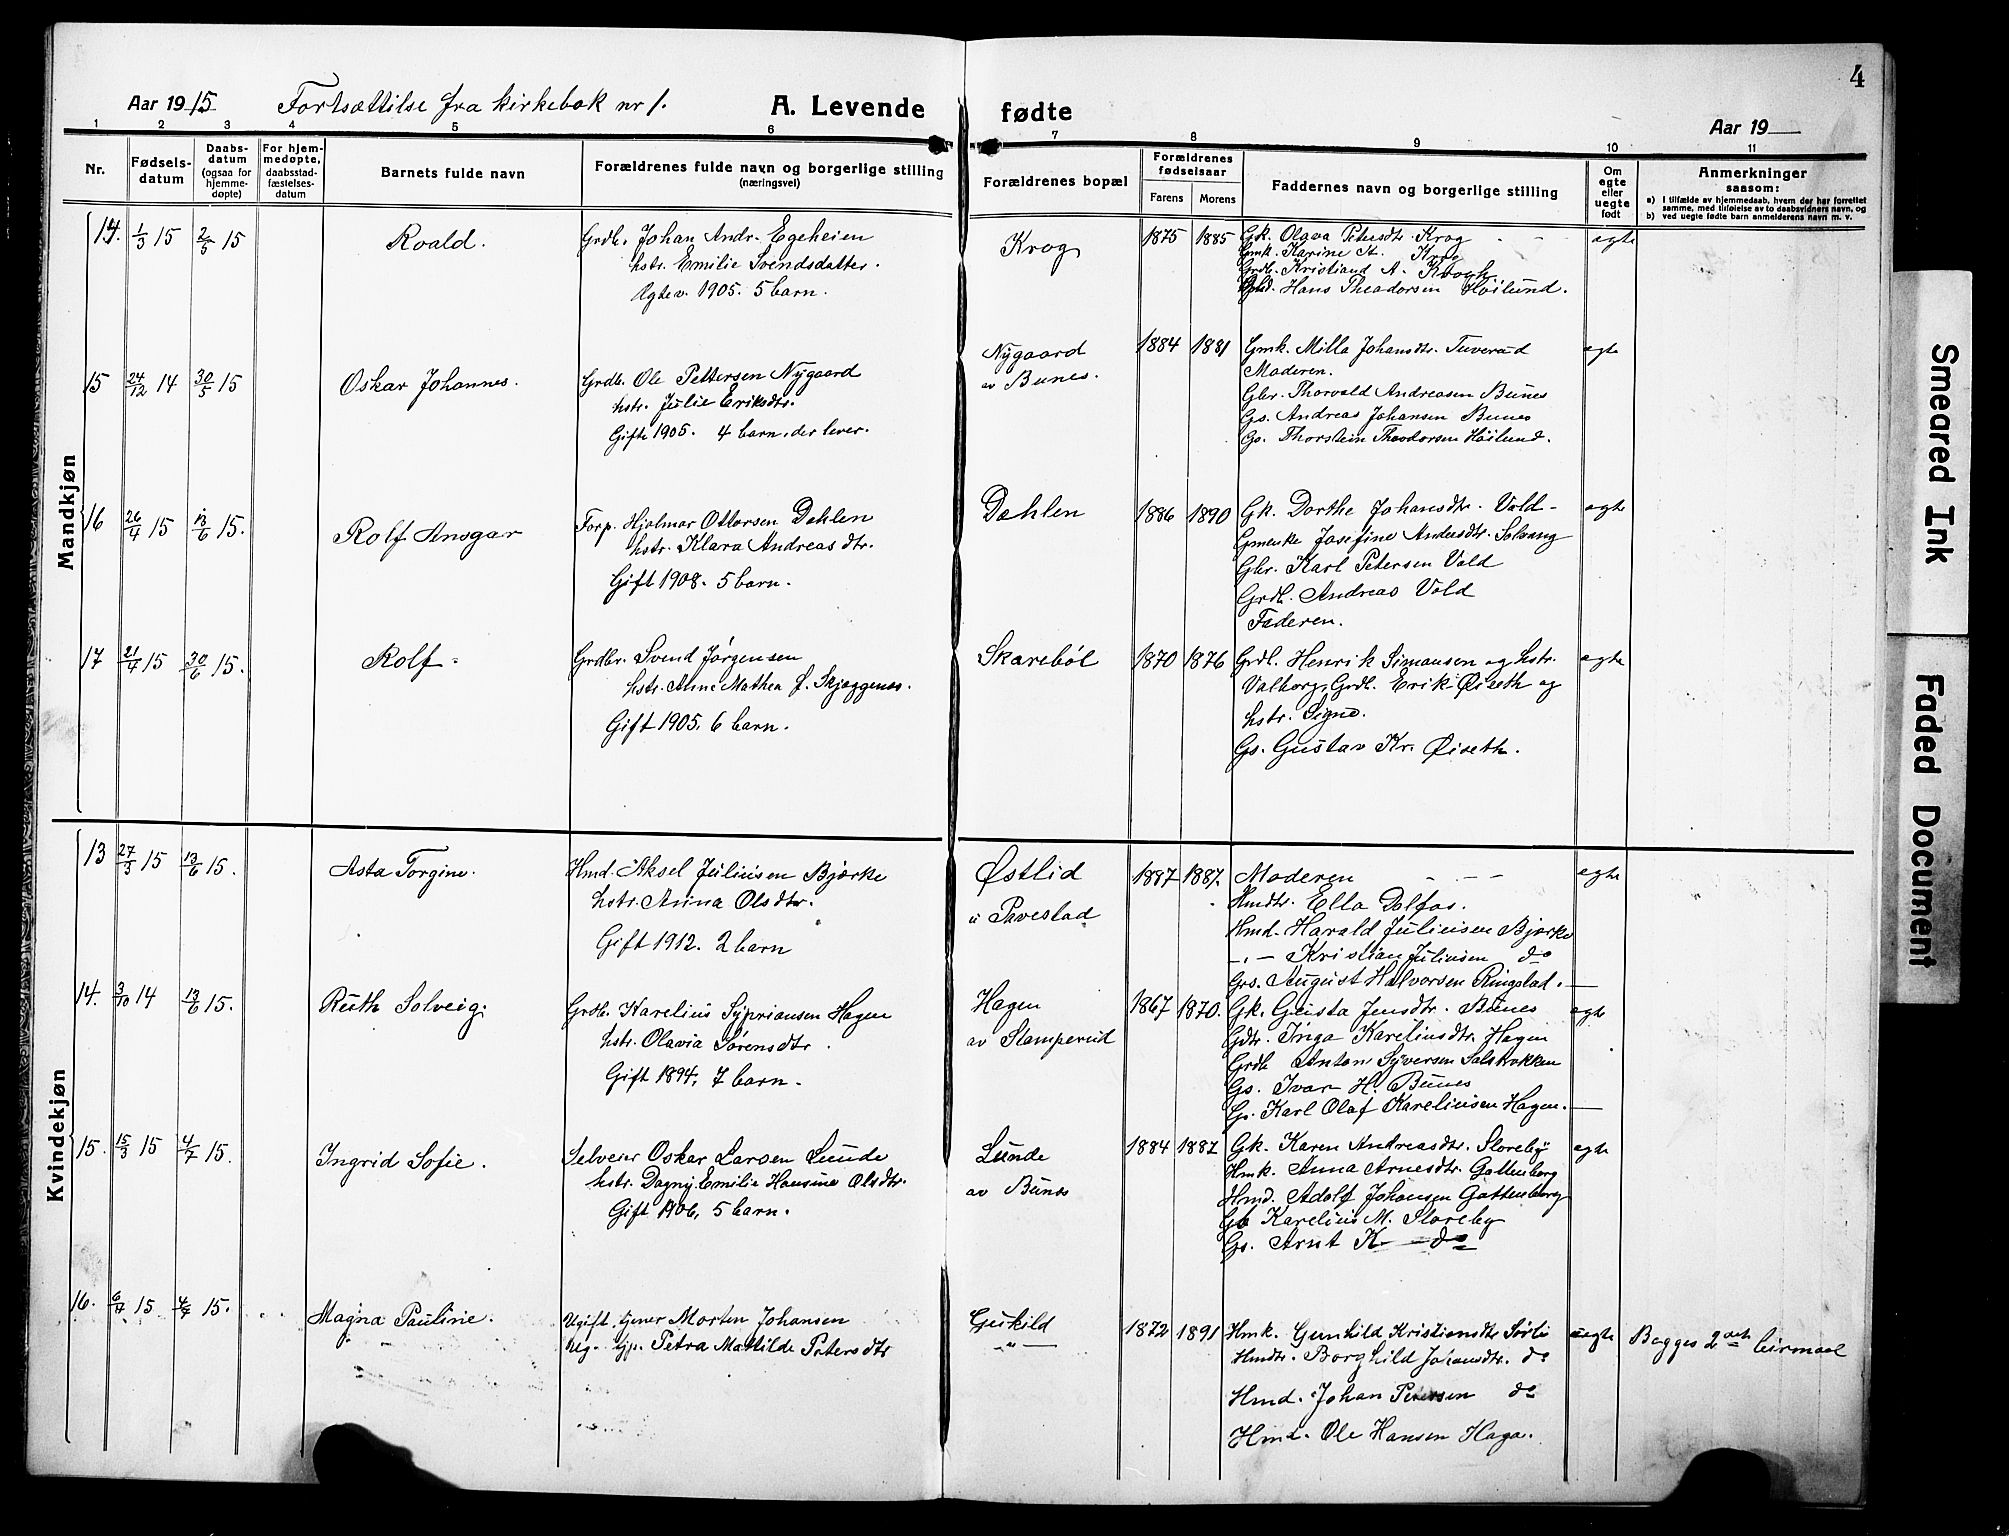 4
Aar 1915 Fortsættilse fra kirkebok nr 1. A. Levende fødte Aar 19
1 2 3 4 5 6 7 8 9 10 11
Nr.
Fødsels-
datum
Daabs-
datum
(ogsaa for
hjemme-
døpte)
For hjem-
medøpte,
daabsstad-
fæstelses-
datum
Barnets fulde navn
Forældrenes fulde navn og borgerlige stilling
(næringsvei)
Forældrenes bopæl
Forældrenes
fødselsaar
Farens Morens
Faddernes navn og borgerlige stilling
Om
egte
eller
uegte
født
Anmerkninger
saasom:
a) I tilfælde av hjemmedaab, hvem der har forrettet
samme, med tilføielse av to daabsvidners navn, og
b) ved uegte fødte barn anmelderens navn m. v.
Mandkjøn
14. 1/3 15 2/5 15 Roald. Grdb. Johan Andr. Egeheien
hstr. Emilie Svendsdatter.
Egtev. 1905. 5 barn.
Krog 1875 1885 Gk. Olava Petersdtr. Krog egte
Gmk. Karine A. Krog
Grdb. Kristiand A. Krogh
Hans Theodorsen Høilund.
15 24/12 14 30/5 15 Oskar Johannes. Grdb. Ole Pettersen Nygaard
hstr. Julie Eriksdtr.
Gift 1905. 4 barn, der lever.
Nygaard
av Bunes.
1884 1881 Gmk. Milla Johansdtr. Tuverud egte
Moderen.
Gbr. Thorvald Andreasen Bunes
Gs. Andreas Johansen Bunes
Gs. Thorstein Theodorsen Høilund.
16 26/4 15 13/6 15. Rolf Ansgar Forp. Hjalmar Ottersen Dahlen
hstr. Klara Andreasdtr.
Gift 1908. 5 barn.
Dahlen 1886 1890 Gk. Dorthe Johansdtr. Vold- egte
Gmenke Josefine Andersdtr. Solvang
Gbr. Karl Petersen Vold
Grdb. Andreas Vold
Faderen.
17 21/4 15 30/6 15. Rolf. Grdbr. Svend Jørgensen
hstr. Anne Mathea f. Skjeggenes.
Gift 1905. 6 barn.
Skarebøl 1870 1876 Grdb. Henrik Simonsen og hstr. egte
Valborg, Grdb. Erik Øiseth og
hstr. Signe.
Gs. Gustav Kr. Øiseth.
Kvindekjøn
13 27/3 15 13/6 15. Asta Torgine. Hmd. Aksel Juliusen Bjørke
hstr. Anna Olsdtr.
Gift 1912. 2 barn
Østlid
u Pavestad
1887 1887. Moderen egte
Hmdtr. Ella Dolfas.
Hmd. Harald Juliusen Bjørke
-"- Kristian Juliusen do
Grs. August Halvorsen Ringstad.
14. 3/10 14 13/6 15. Ruth Solveig. Grdb. Karelius Syprianssen Hagen
hstr. Olavia Sørensdtr.
Gift 1894, 7 barn.
Hagen
av Slamperud
1867 1870. Gk. Gusta Jensdtr. Bunes egte
Gdtr. Inga Kareliusdtr. Hagen
Grdb Anton Syversen Solstrokken
Gs. Ivar H. Bunes
Gs. Karl Olaf Kareliusen Hagen.
15. 15/3 15 4/7 15. Ingrid Sofie. Selveier Oskar Larsen Lunde
hstr. Dagny Emilie Hansine Olsdtr.
Gift 1906, 5 barn.
Lunde
av Bunes
1884 1887 Gk. Karen Andreasdtr. Storeby egte
Hmk. Anna Arnesdtr. Gottenborg
Hmd. Adolf Johansen Gottenborg
Gb Karelius M. Storeby
Gs. Arnt K do
16. 6/4 15 4/7 15. Magna Pauline. Ugift tjener Morten Johansen
Ug. tjp. Petra Mathilde Petersdtr
Gukild
-"-
1872 1891 Hmk. Gunhild Kristiansdtr Sørli uegte Begges 2det leirmaal
Hmdtr. Borghild Johansdtr. do
Hmd. Johan Petersen do
Hmd. Ole Hansen Haga.
Smeared Ink
Faded Document